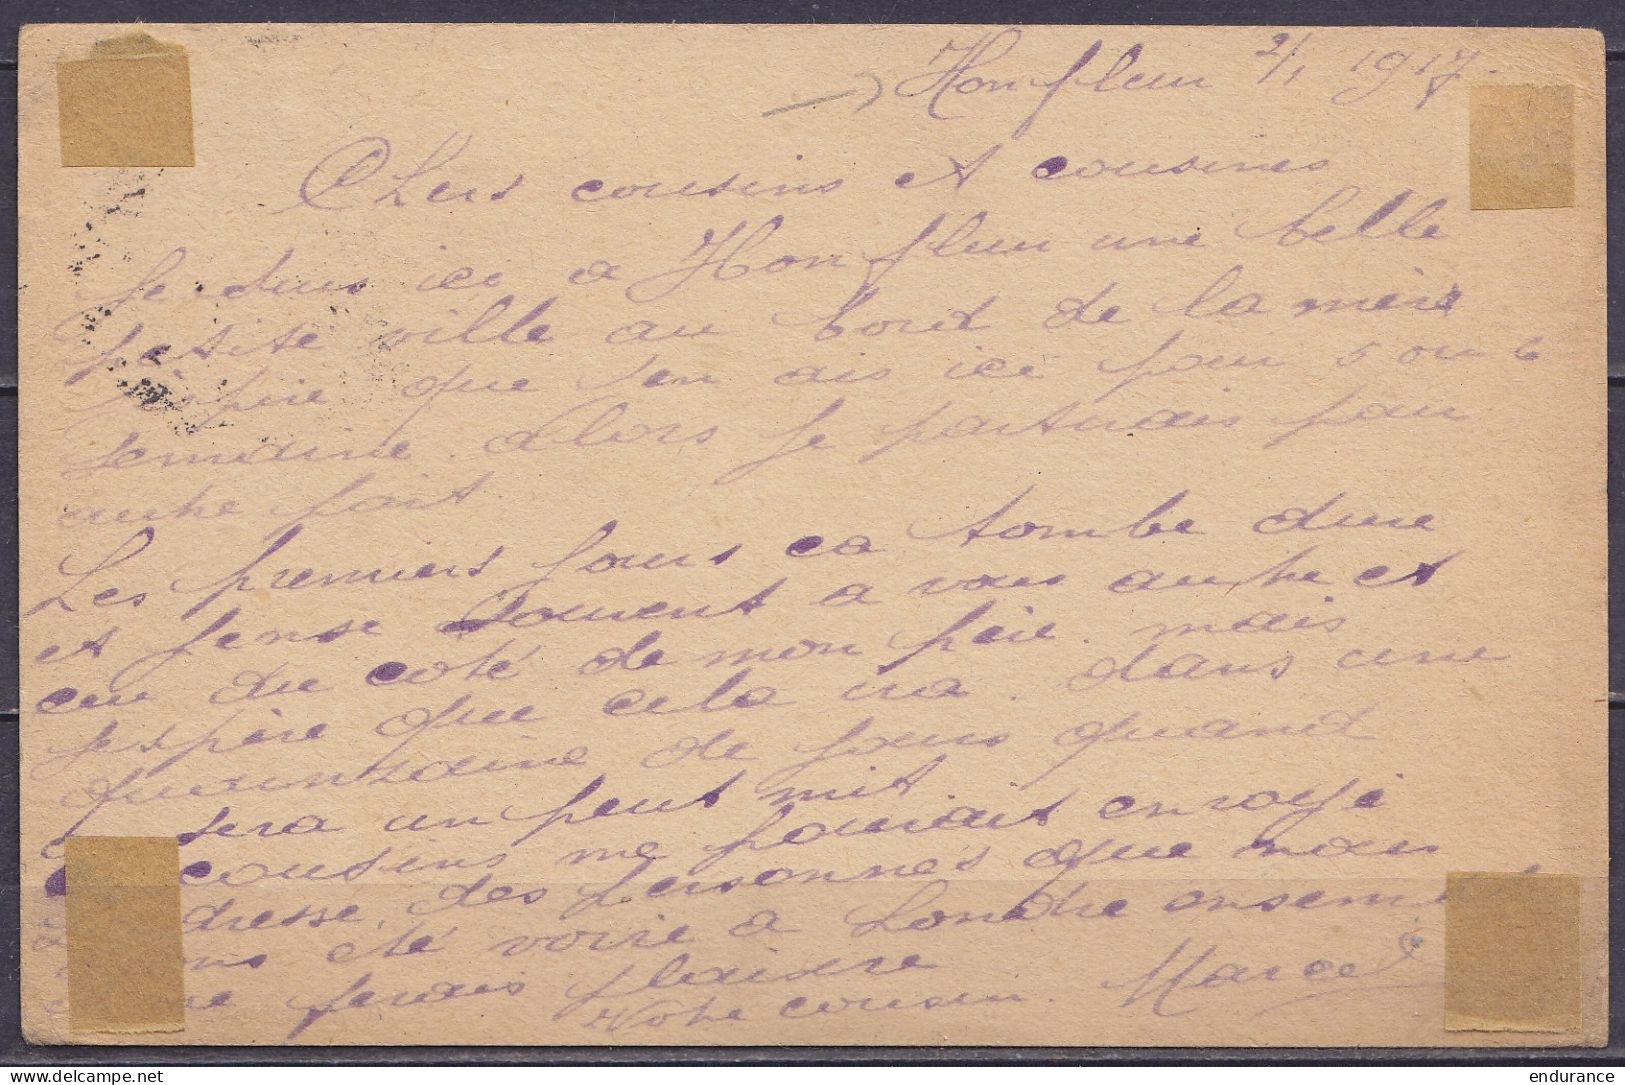 Honfleur 2/1 1917.
Chers cousins et cousines
Je suis ici a Honfleur une belle
petite ville au bord de la mère
j'espère que j'en ais ici pour 5 ou 6
semaine. alors je partirais pour
autre part.
Les premiers jours ca tombe dure
et pense souvent a vous autre et
au du coté de mon père. mais
j'espère que cela ira. dans une
quinzaine de jours quand
sera un peut mit.
cousins me pourait envoyé
dresse, des personnes que nous
ons été voire a Londre ensemb
me ferais plaisire
Votre cousin. Marcel
endurance